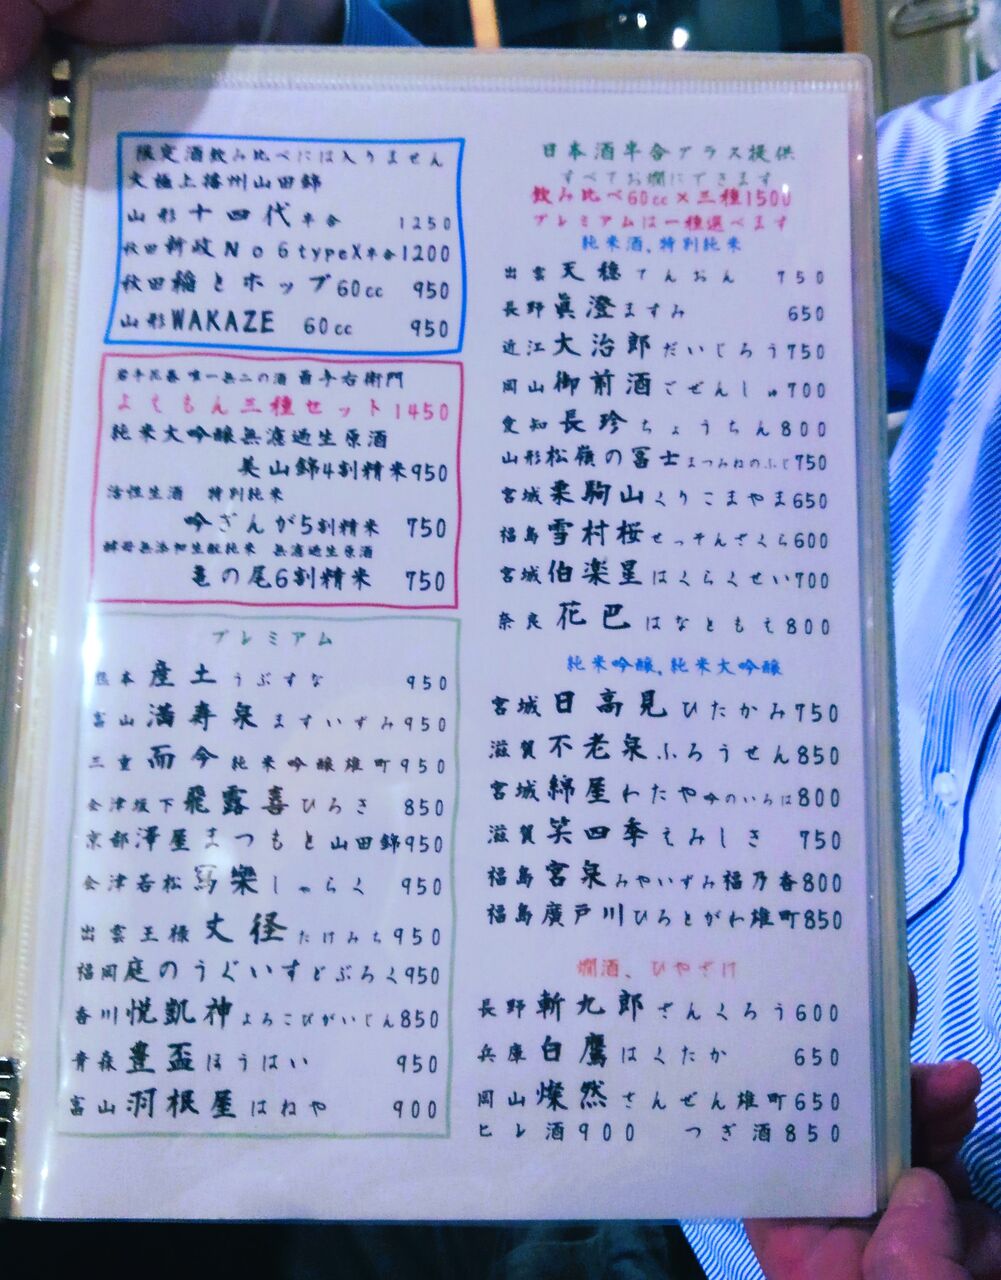 限定酒飲み比べには入りません
大極上播州山田錦
山形 十四代 半合 1250
秋田 新政No6typeX半合1200
秋田 稲とホップ60cc 950
山形 WAKAZE 60cc 950
岩手花巻 唯一無二の酒 酉与右衛門
よえもん三種セット1450
純米大吟醸無濾過生原酒
美山錦4割精米950
活性生酒 特別純米
吟ぎんが5割精米 750
酵母無添加生酛純米 無濾過生原酒
亀の尾6割精米 750
プレミアム
熊本 産土 うぶすな 950
富山 満寿泉 ますいずみ950
三重 而今 純米吟醸雄町950
会津坂下 飛露喜 ひろき 850
京都 澤屋まつもと山田錦950
会津若松 寫樂 しゃらく 950
出雲王祿 丈径 たけみち950
福岡 庭のうぐいすどぶろく950
香川 悦凱神 よろこびがいじん850
青森 豊盃 ほうはい 950
富山 羽根屋 はねや 900
日本酒半合グラス提供
すべてお燗にできます
飲み比べ60cc×三種1500
プレミアムは一種選べます
純米酒、特別純米
出雲 天穏 てんおん 750
長野 眞澄 ますみ 650
近江 大治郎 だいじろう750
岡山 御前酒 ごぜんしゅ700
愛知 長珍 ちょうちん800
山形 松嶺の冨士 まつみねのふじ750
宮城 栗駒山 くりこまやま650
福島 雪村桜 せっそんざくら600
宮城 伯楽星 はくらくせい700
奈良 花巴 はなともえ800
純米吟醸、純米大吟醸
宮城 日高見 ひたかみ750
滋賀 不老泉 ふろうせん850
宮城 綿屋 わたや吟のいろは800
滋賀 笑四季 えみしき 750
福島 宮泉 みやいずみ福乃香800
福島 廣戸川 ひろとがわ雄町850
燗酒、ひやざけ
長野 斬九郎 ざんくろう600
兵庫 白鷹 はくたか 650
岡山 燦然 さんぜん雄町650
ヒレ酒900 つぎ酒850